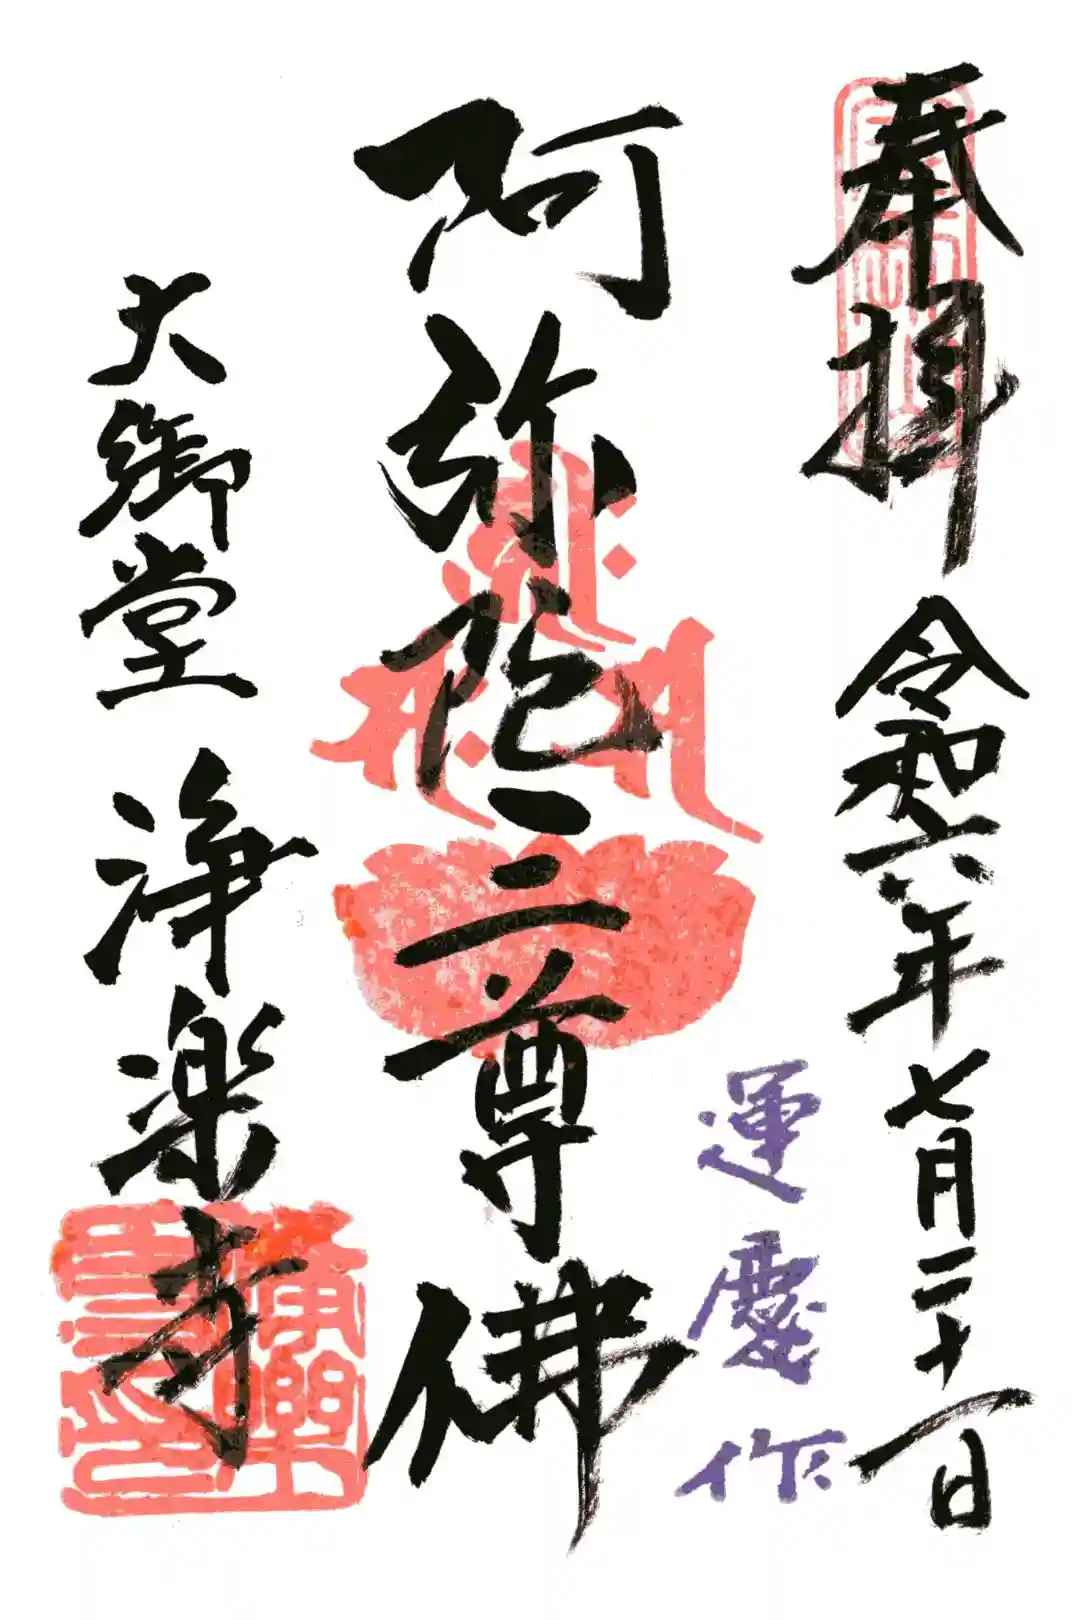 奉拝 令和六年七月二十一日
運慶作
阿弥陀三尊佛
大御堂 浄楽寺